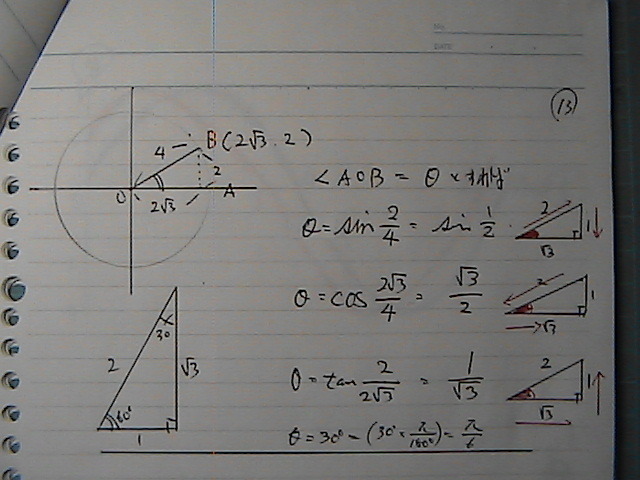 No.
DATE
13
B(2√3.2)
4
2
O
2√3
A
<AOB = θとすれば
θ = sin 2/4 = sin 1/2.
2
1
√3
θ = cos 2√3/4 = √3/2
2
1
√3
θ = tan 2/2√3 = 1/√3
2
1
√3
θ = 30° - (30° × π/180°) = π/6
30
2
√3
60°
1